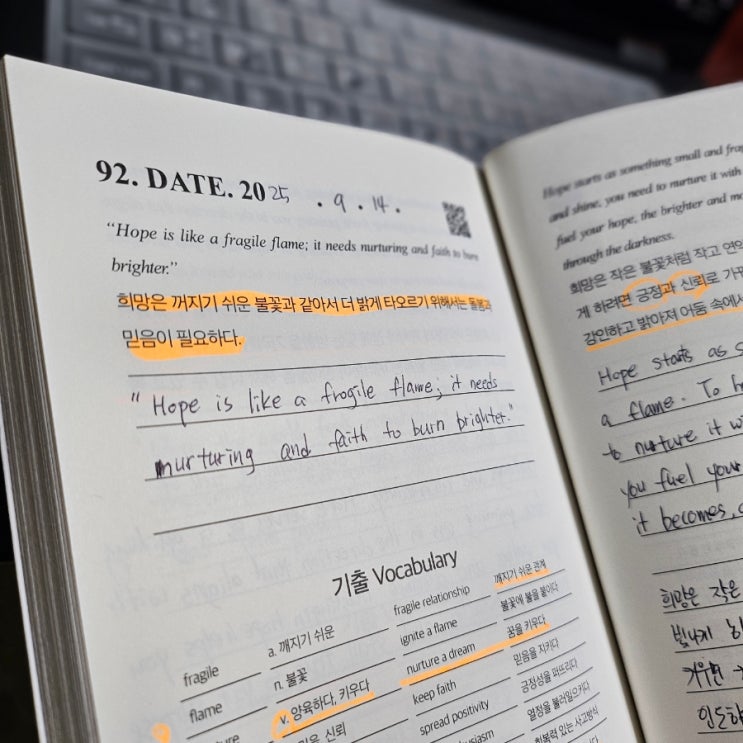 92. DATE. 20 25 . 9 . 14 .
“Hope is like a fragile flame; it needs nurturing and faith to burn
brighter.”
희망은 꺼지기 쉬운 불꽃과 같아서 더 밝게 타오르기 위해서는 돌봄과
믿음이 필요하다.
" Hope is like a fragile flame; it needs
nurturing and faith to burn brighter."
기출 Vocabulary
fragile a. 깨지기 쉬운 fragile relationship 깨지기 쉬운 관계
flame n. 불꽃 ignite a flame 불꽃에 불을 붙이다
v. 양육하다, 키우다 nurture a dream 꿈을 키우다
신뢰 keep faith 믿음을 지키다
spread positivity 긍정성을 퍼뜨리다
열정을 불러일으키다
회복력 있는 사고방식
Hope starts as something small and
and shine, you need to nurture it with
fuel your hope, the brighter and
through the darkness.
희망은 작은 불꽃처럼 작고
게 하려면 긍정과 신뢰로
강인하고 밝아져 어둠 속에서
Hope starts as
a flame. To
to nurture it
you fuel your
it becomes,
희망은 작은
빛나게
키우면